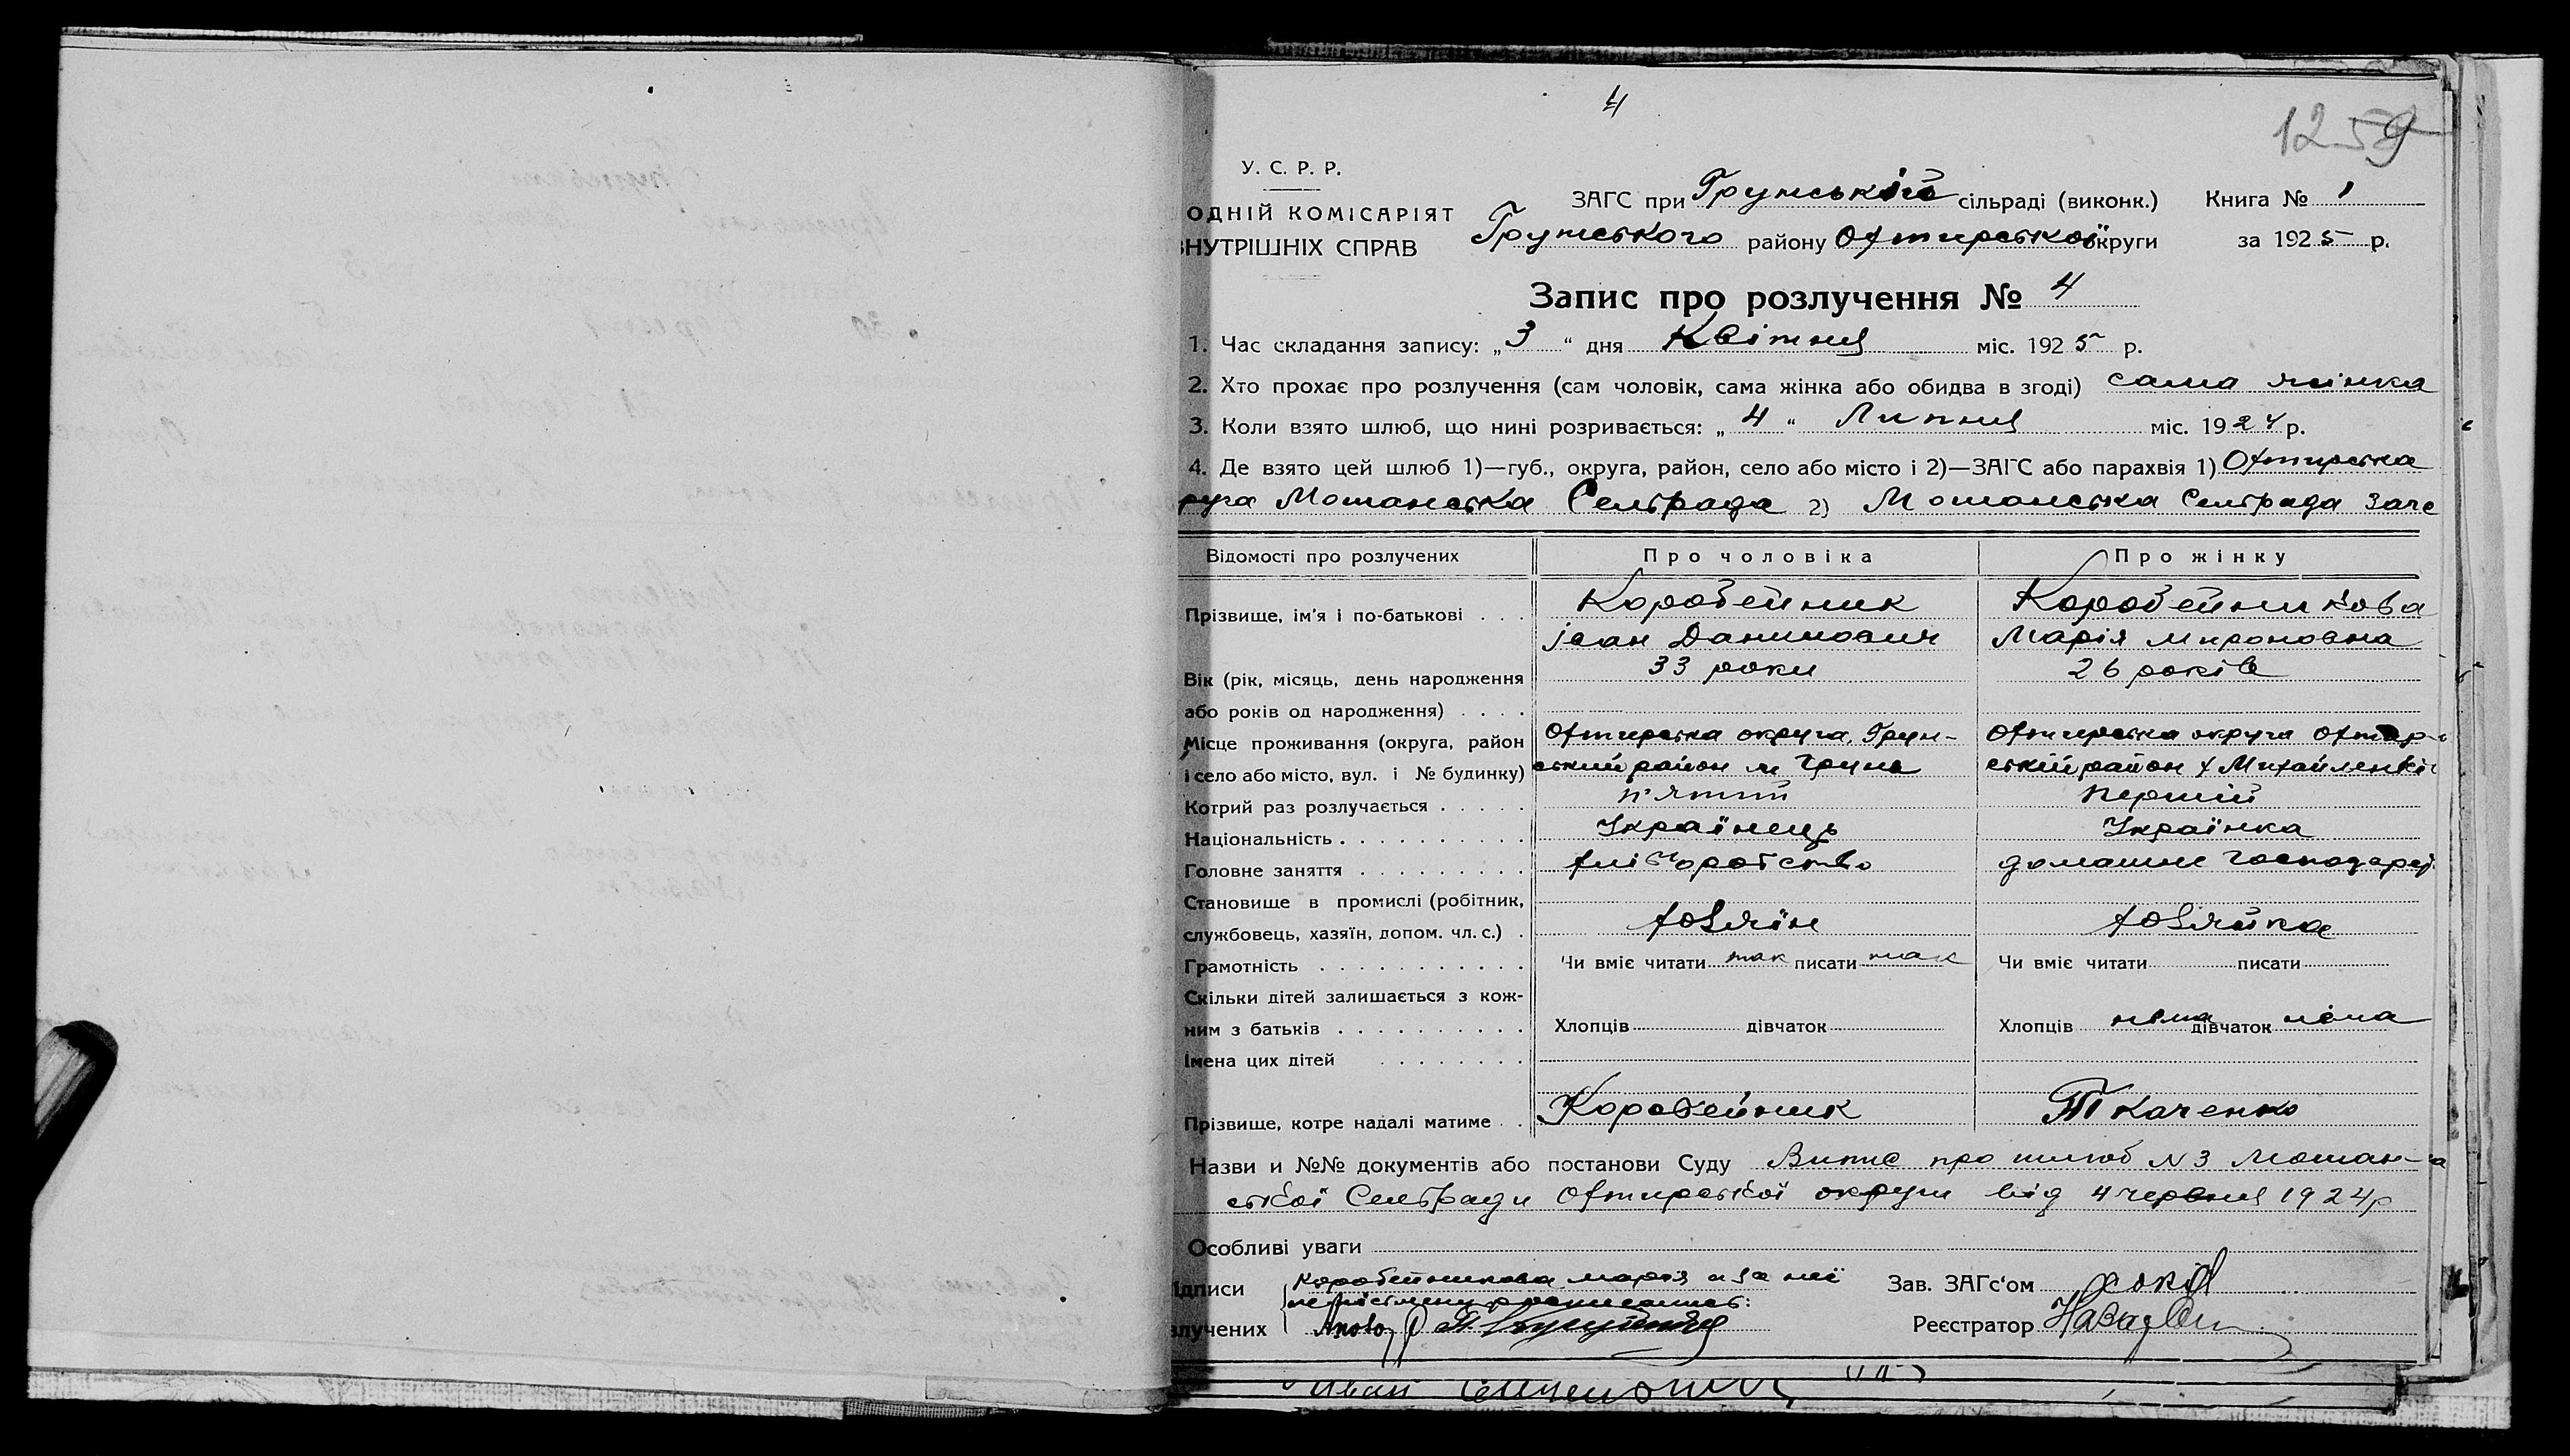 4
1259
У. С. Р. Р.
ОДНІЙ КОМІСАРІЯТ
ВНУТРІШНІХ СПРАВ
ЗАГС при Грунській сільраді (виконк.) Книга № 1
Грунського району Охтирської округи за 1925 р.
Запис про розлучення № 4
1. Час складання запису: „3“ дня Квітня міс. 1925 р.
2. Хто прохає про розлучення (сам чоловік, сама жінка або обидва в згоді) сама жінка
3. Коли взято шлюб, що нині розривається: „4“ Липня міс. 1924 р.
4. Де взято цей шлюб 1)—губ., округа, район, село або місто і 2)—ЗАГС або парахвія 1) Охтирська
руга Мошанська Сельрада 2) Мошанська Сельрада Загс
Відомості про розлучених Про чоловіка Про жінку
Прізвище, ім'я і по-батькові . . . Коробейник Коробейникова
іван Данилович Марія Мироновна
Вік (рік, місяць, день народження 33 роки 26 років
або років од народження) . . . .
Місце проживання (округа, район Охтирська округа, Грун- Охтирська округа Охтир-
і село або місто, вул. і № будинку) ський район м Грунь ський район х Михайленків
Котрий раз розлучається . . . . . п'ятий перший
Національність . . . . . . . . . . Українець Українка
Головне заняття . . . . . . . . . хліборобство домашнє господар
Становище в промислі (робітник,
службовець, хазяїн, допом. чл. с.) . хозяїн хозяйка
Грамотність . . . . . . . . . . . Чи вміє читати так писати так Чи вміє читати писати
Скільки дітей залишається з кож-
ним з батьків . . . . . . . . . . Хлопців дівчаток Хлопців нема дівчаток нема
Імена цих дітей . . . . . . . .
Прізвище, котре надалі матиме . . Коробейник Ткаченко
Назви и №№ документів або постанови Суду Випис про шлюб N 3 Мошан-
ської Сельради Охтирської округи від 4 червня 1924р
Особливі уваги
ідписи Коробейникова марія а за неї
злучених
Зав. ЗАГс‘ом
Реєстратор
Иван